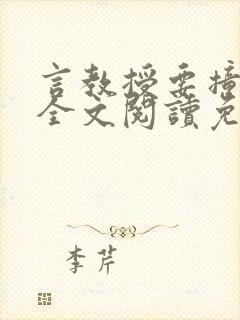 言教授要撞
全文閱讀免
李芹